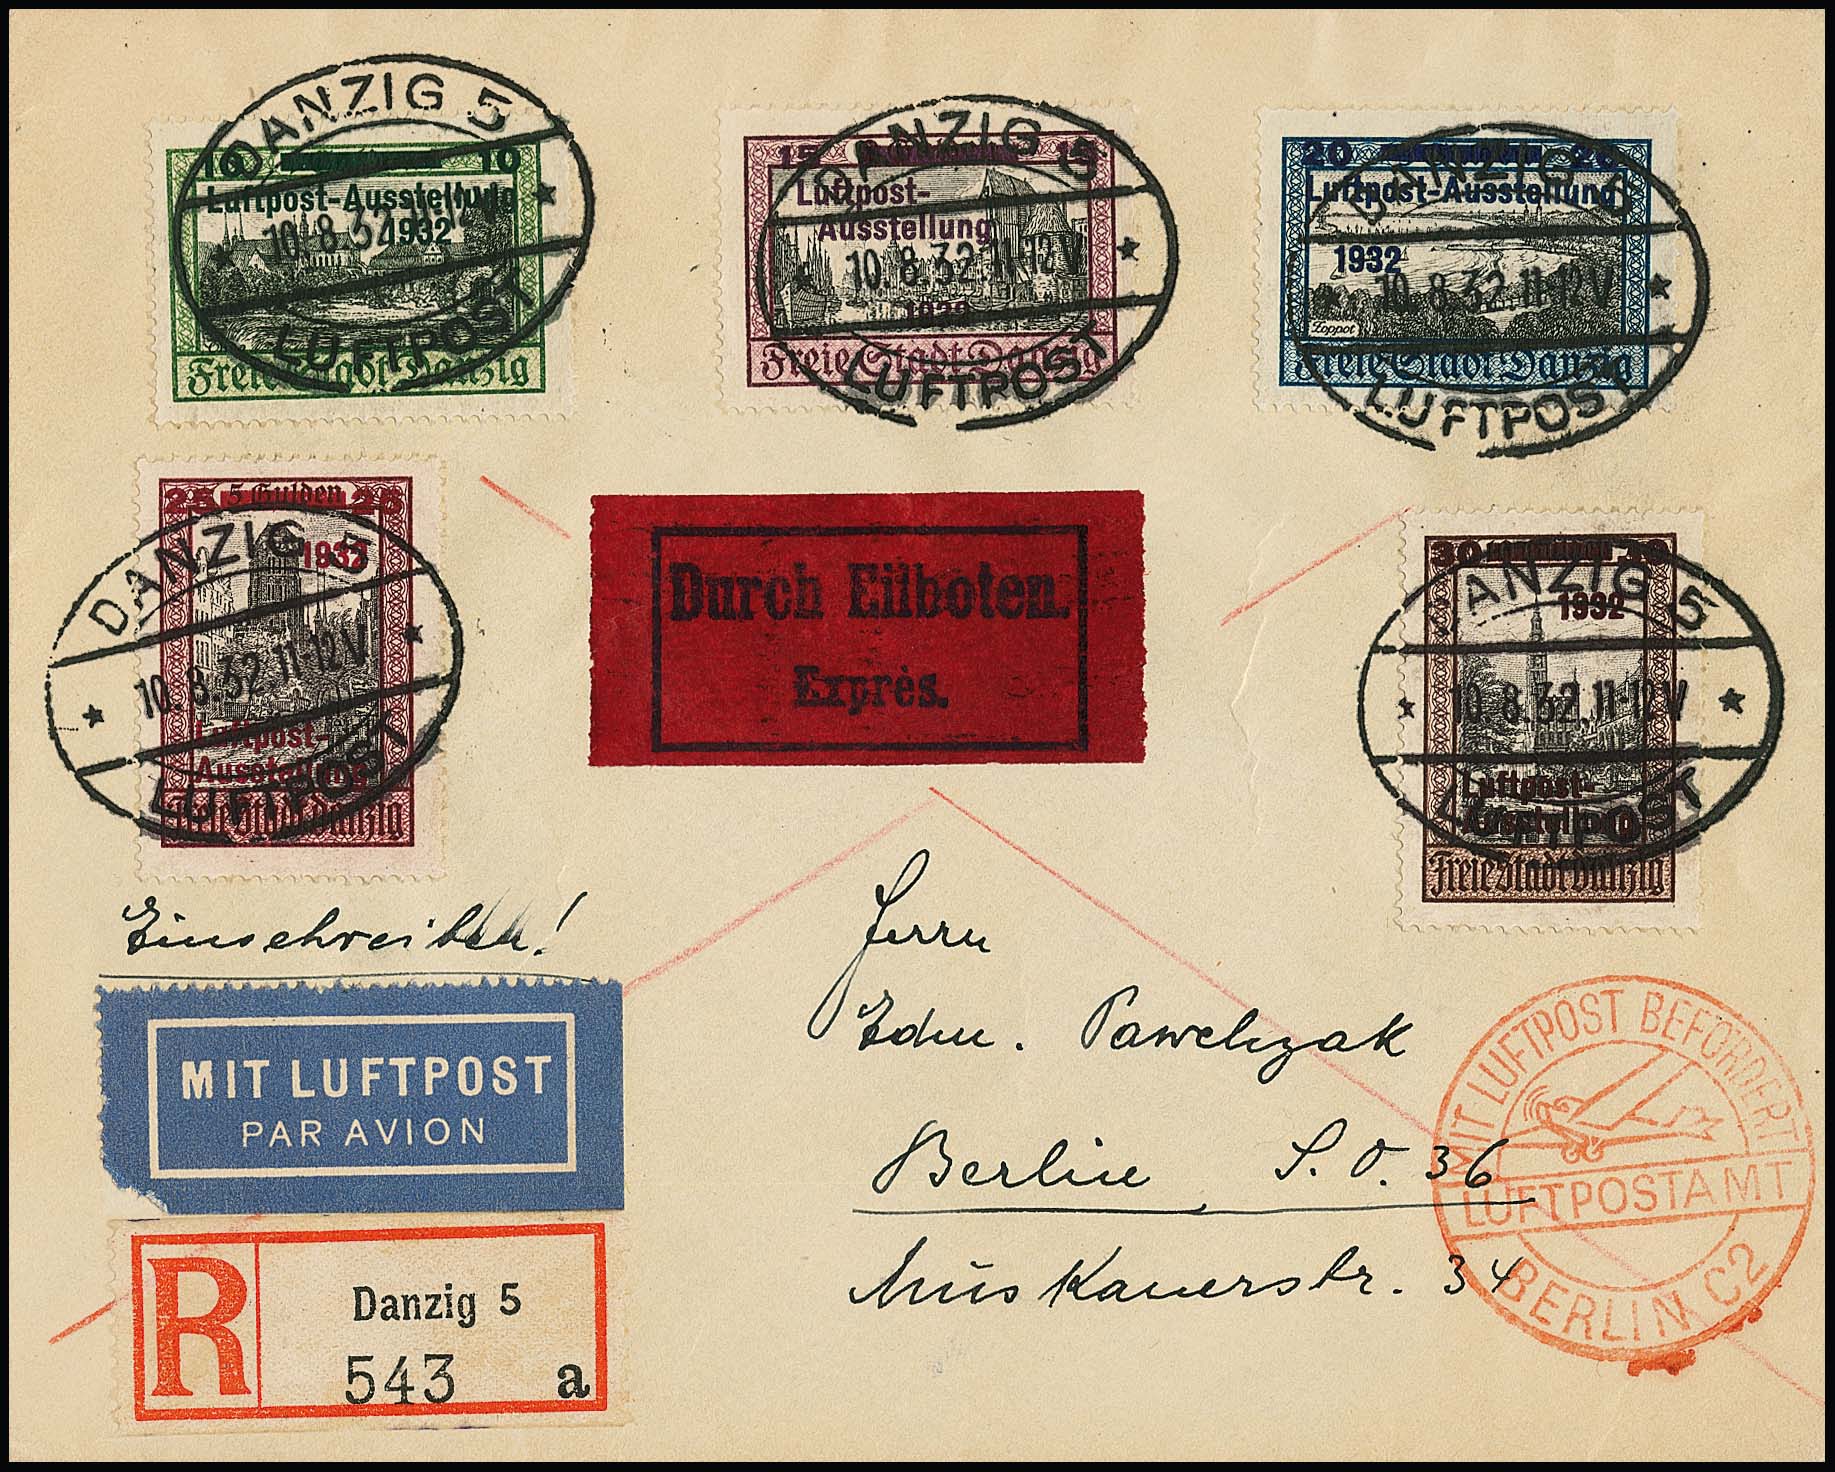 DANZIG 5
10 10
Luftpost-Ausstellung
1932
10.8.32.11-12V
LUFTPOST
Freie Stadt Danzig
DANZIG 5
15 15
Luftpost-
Ausstellung
10.8.32.11-12V
1932
LUFTPOST
Freie Stadt Danzig
DANZIG 5
20 20
Luftpost-Ausstellung
1932
10.8.32.11-12V
Zoppot
Freie Stadt Danzig
LUFTPOST
25 5 Gulden 25
DANZIG 5
1932
10.8.32.11-12V
Luftpost-
Ausstellung
LUFTPOST
Freie Stadt Danzig
Durch Eilboten.
Exprès.
30 30
DANZIG 5
1932
10.8.32.11-12V
Luftpost-
Ausstellung
LUFTPOST
Freie Stadt Danzig
Einschreiben!
MIT LUFTPOST
PAR AVION
R
Danzig 5
543 a
Herrn
Edm. Pawelczak
Berlin S.O. 36
Muskauerstr. 34
MIT LUFTPOST BEFÖRDERT
LUFTPOSTAMT
BERLIN C2